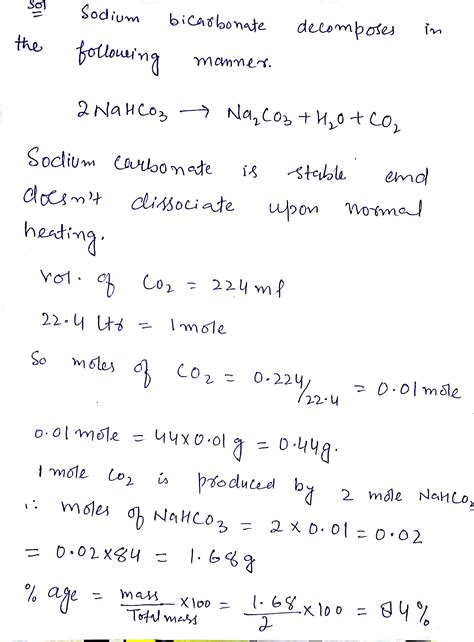 Sol
Sodium bicarbonate decomposes in
the following manner.
2NaHCO3 → Na2CO3 + H2O + CO2
Sodium carbonate is stable and
doesn't dissociate upon normal
heating.
vol. of CO2 = 224 ml
22.4 Ltr = 1mole
So moles of CO2 = 0.224/22.4 = 0.01 mole
0.01 mole = 44×0.01 g = 0.44g.
1 mole CO2 is produced by 2 mole NaHCO3
∴ moles of NaHCO3 = 2 × 0.01 = 0.02
= 0.02×84 = 1.68g
% age = mass/Total mass ×100 = 1.68/2 ×100 = 84%